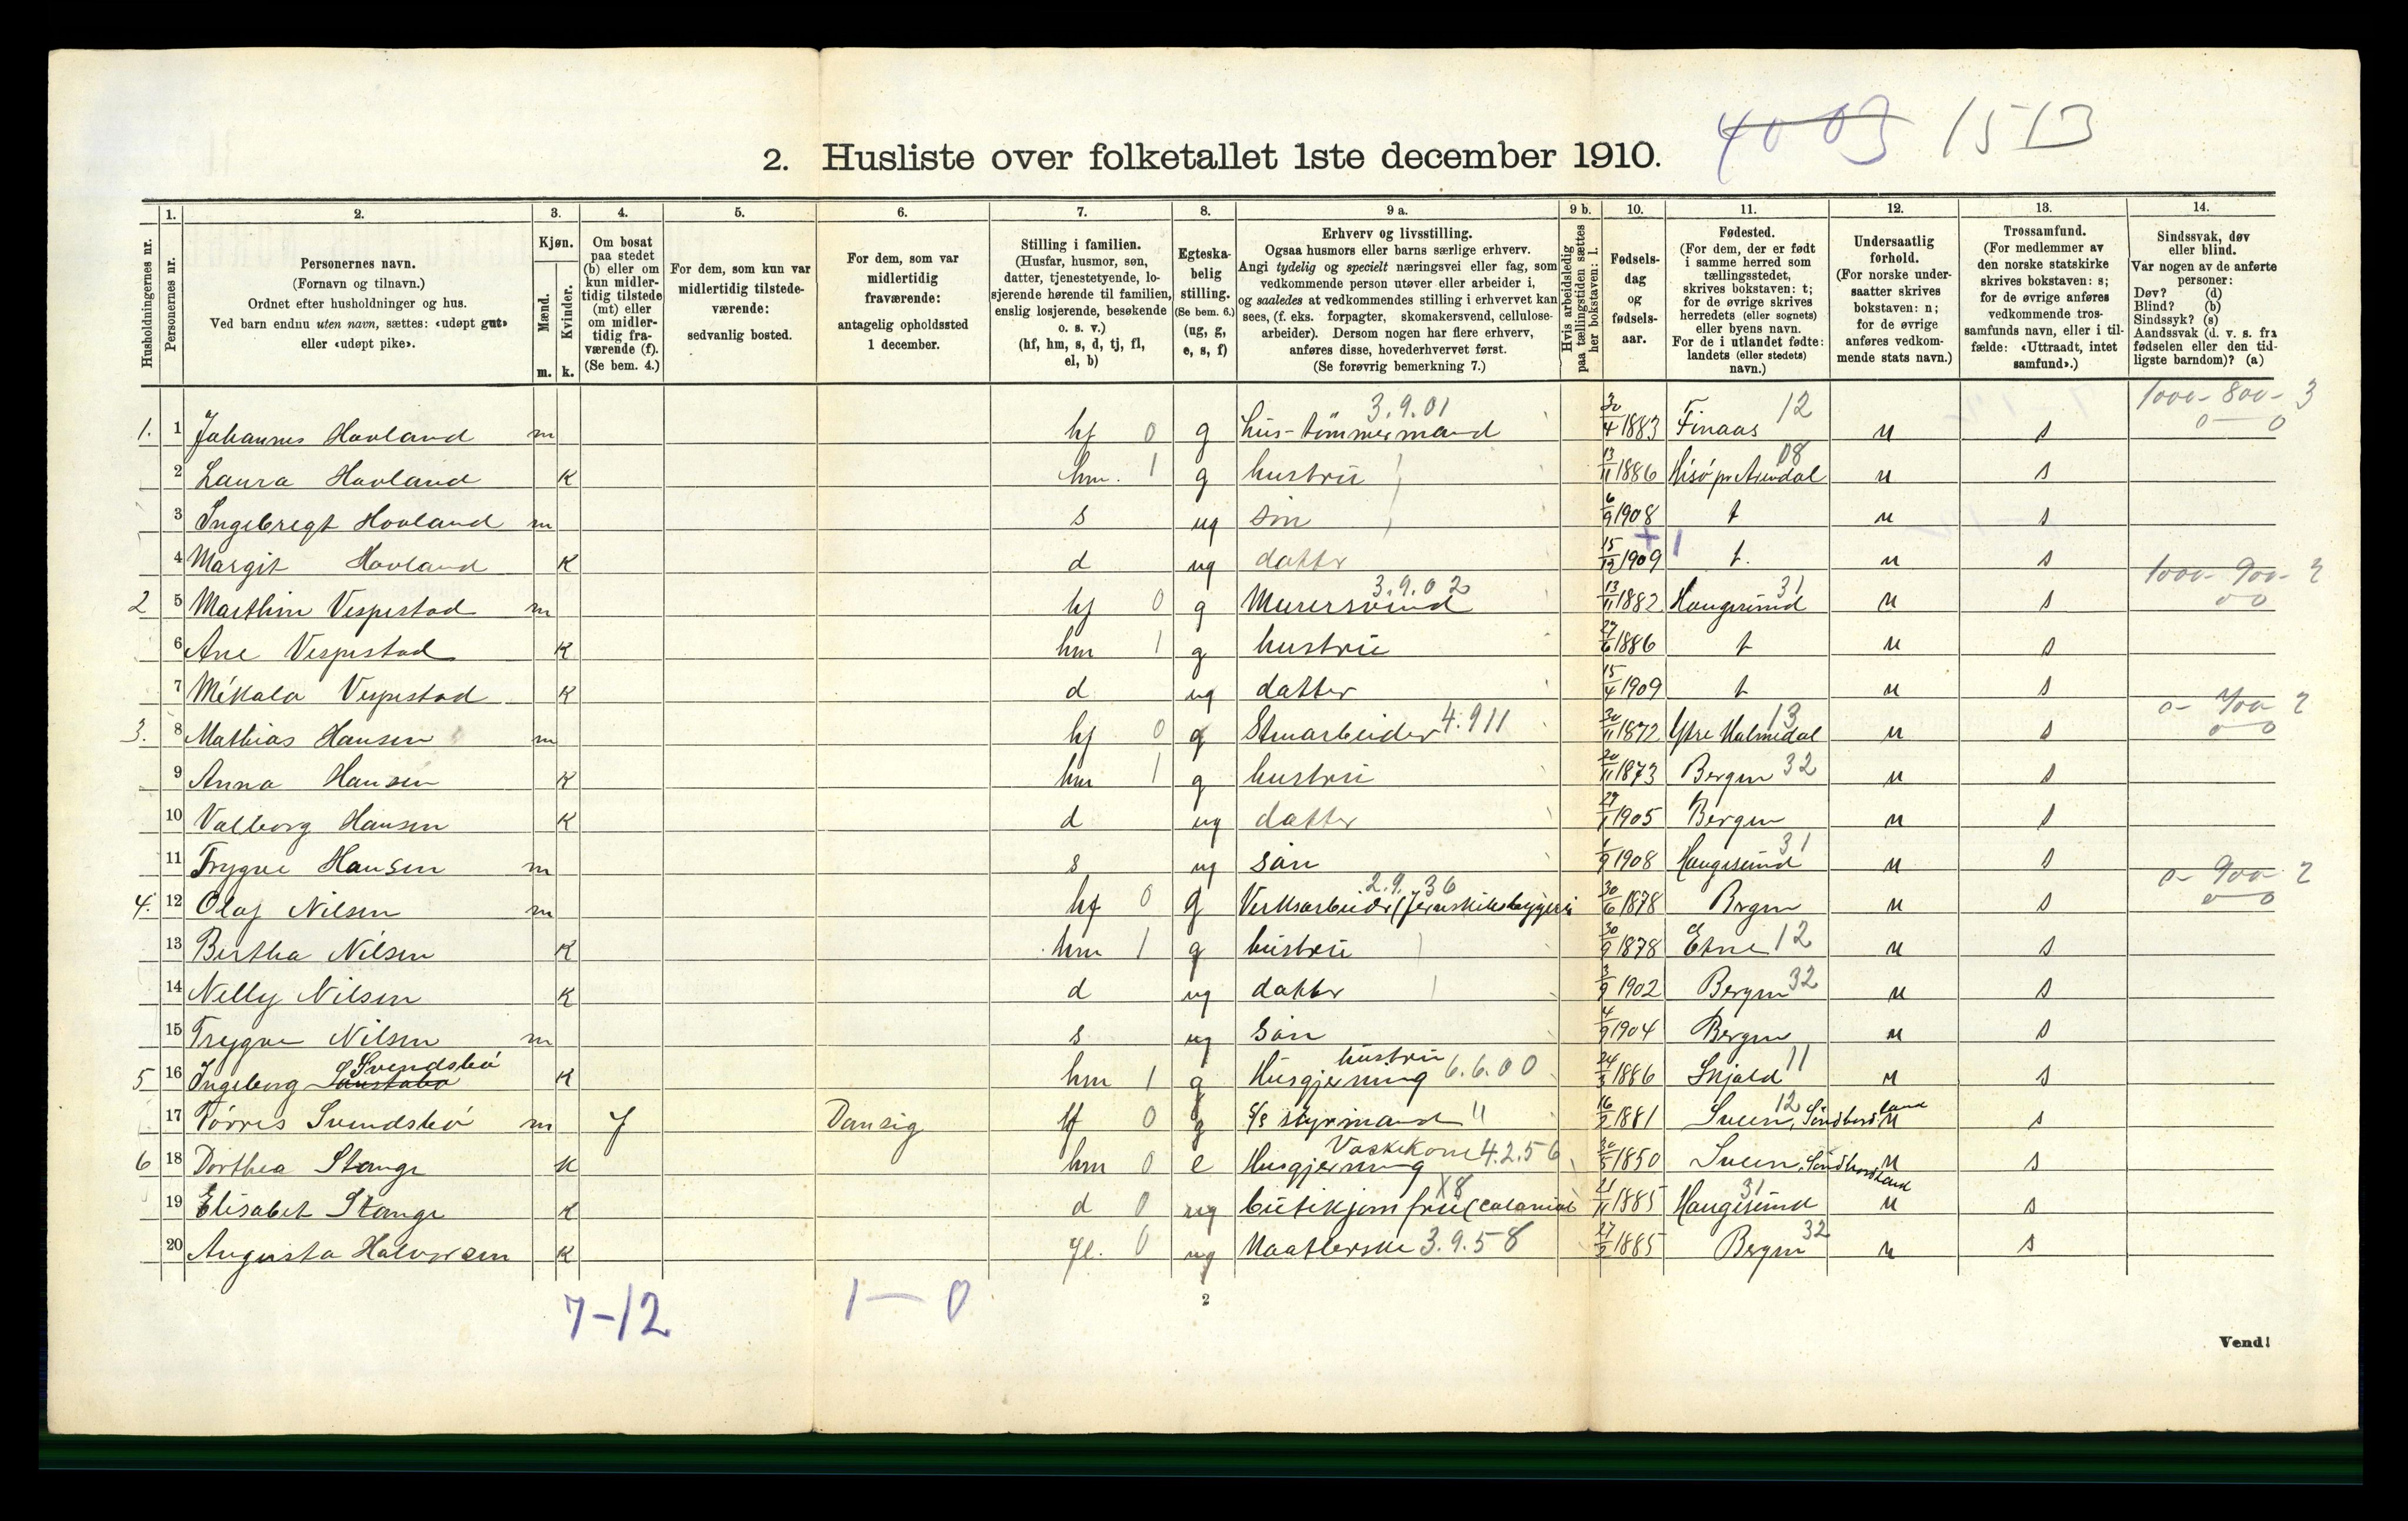 4003 1513
2. Husliste over folketallet 1ste december 1910.
Husholdningernes nr.
1. Personernes nr.
2. Personernes navn. (Fornavn og tilnavn.) Ordnet efter husholdninger og hus. Ved barn endnu uten navn, sættes: «udøpt gut» eller «udøpt pike».
3. Kjøn. Mænd. m. Kvinder. k.
4. Om bosat paa stedet (b) eller om kun midlertidig tilstede (mt) eller om midlertidig fraværende (f). (Se bem. 4.)
5. For dem, som kun var midlertidig tilstedeværende: sedvanlig bosted.
6. For dem, som var midlertidig fraværende: antagelig opholdssted 1 december.
7. Stilling i familien. (Husfar, husmor, søn, datter, tjenestetyende, losjerende hørende til familien, enslig losjerende, besøkende o. s. v.) (hf, hm, s, d, tj, fl, el, b)
8. Egteskabelig stilling. (Se bem. 6.) (ug, g, e, s, f)
9 a. Erhverv og livsstilling. Ogsaa husmors eller barns særlige erhverv. Angi tydelig og specielt næringsvei eller fag, som vedkommende person utøver eller arbeider i, og saaledes at vedkommendes stilling i erhvervet kan sees, (f. eks. forpagter, skomakersvend, cellulosearbeider). Dersom nogen har flere erhverv, anføres disse, hovederhvervet først. (Se forøvrig bemerkning 7.)
9 b. Hvis arbeidsledig paa tællingstiden sættes her bokstaven: l.
10. Fødselsdag og fødselsaar.
11. Fødested. (For dem, der er født i samme herred som tællingsstedet, skrives bokstaven: t; for de øvrige skrives herredets (eller sognets) eller byens navn. For de i utlandet fødte: landets (eller stedets) navn.)
12. Undersaatlig forhold. (For norske undersaatter skrives bokstaven: n; for de øvrige anføres vedkommende stats navn.)
13. Trossamfund. (For medlemmer av den norske statskirke skrives bokstaven: s; for de øvrige anføres vedkommende trossamfunds navn, eller i tilfælde: «Uttraadt, intet samfund».)
14. Sindssvak, døv eller blind. Var nogen av de anførte personer: Døv? (d) Blind? (b) Sindssyk? (s) Aandssvak (d. v. s. fra fødselen eller den tidligste barndom)? (a)
1. 1 Johannes Hovland m hf 0 g hus-tömmermand 3.9.01 30/4 1883 Finaas 12 n s 1000-800-3 0-0
2 Laura Hovland K hm. 1 g hustru 13/11 1886 Hisö pr Arendal 08 n s
3 Ingebregt Hovland m s ug sön 6/9 1908 t n s
4 Margit Hovland K d ug datter 15/12 1909 + 1 t. n s
2 5 Marthin Vespestad m hf 0 g Murersvend 3.9.02 13/11 1882 Haugesund 31 n s 1000-900-2 00
6 Ane Vespestad K hm 1 g hustru 27/6 1886 t n s
7 Mikala Vespestad K d ug datter 15/4 1909 t n s
3. 8 Mathias Hansen m hf 0 g Stuarbeider 4.911 30/11 1872 Ytre Holmedal 13 n s 0-700-2 0-0
9 Anna Hansen K hm 1 g hustru 20/11 1873 Bergen 32 n s
10 Valborg Hansen K d ug datter 29/1 1905 Bergen n s
11 Trygve Hansen m s ug sön 1/9 1908 Haugesund 31 n s
4. 12 Olaf Nilsen m hf 0 g Verksarbeider (Jernskibsbyggeri 2.9.36 30/6 1878 Bergen n s 0-900-2 0-0
13 Bertha Nilsen K hm 1 g hustru 30/9 1878 Etne 12 n s
14 Nelly Nilsen K d ug datter 3/9 1902 Bergen 32 n s
15 Trygve Nilsen m s ug sön 4/9 1904 Bergen n s
5 16 Ingeborg Svendsbö K hm 1 g Husgjerning hustru 6.6.00 24/3 1886 Skjold 11 n s
17 Törres Svendsbö m f Dansig hf 0 g s/s styrmand " 16/2 1881 Sveen, Söndhordland 12 n s
6 18 Dorthea Stange K hm 0 e Husgjerning Vaskekone 4.2.56 30/5 1850 Sveen, Söndhordland n s
19 Elisabet Stange K d 0 ug butikjomfru (colonial X8 21/11 1885 Haugesund 31 n s
20 Augusta Halvorsen K fl. 0 ug Maatlerske 3.9.58 27/2 1885 Bergen 32 n s
7-12 1-0
2
Vend!